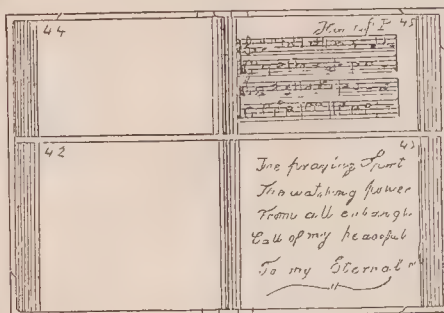 44
45
42
The praying Spirit
The watching power
From all entangl
Call of my peaceful
To my Eternal r